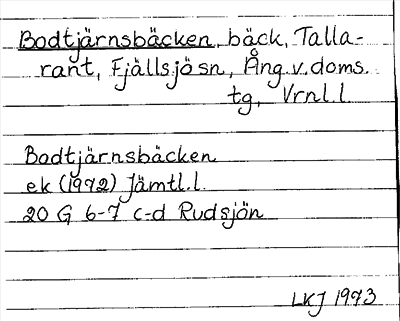 Bodtjärnsbäcken, bäck, Talla-
rant, Fjällsjö sn, Ång. v. doms.
tg, Vrnl. l.
Bodtjärnsbäcken
ek (1972) Jämtl. l.
20 G 6-7 c-d Rudsjön
LKJ 1973